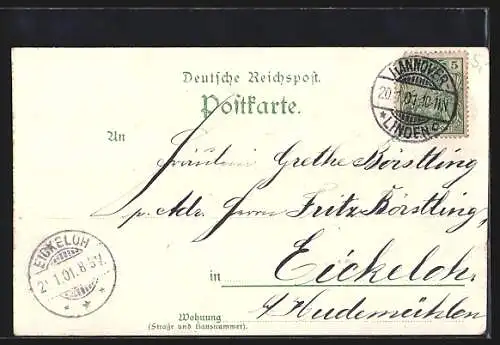 Deutsche Reichspost.
Postkarte.
5
HANNOVER
20.1.01.10-11N.
* LINDEN 2
An
Fräulein Grethe Börstling
p. Adr. Herrn Fritz Börstling,
EICKELOH
21.1.01.8-9V.
* * *
in Eickeloh.
Wohnung
(Straße und Hausnummer).
b/ Hudemühlen